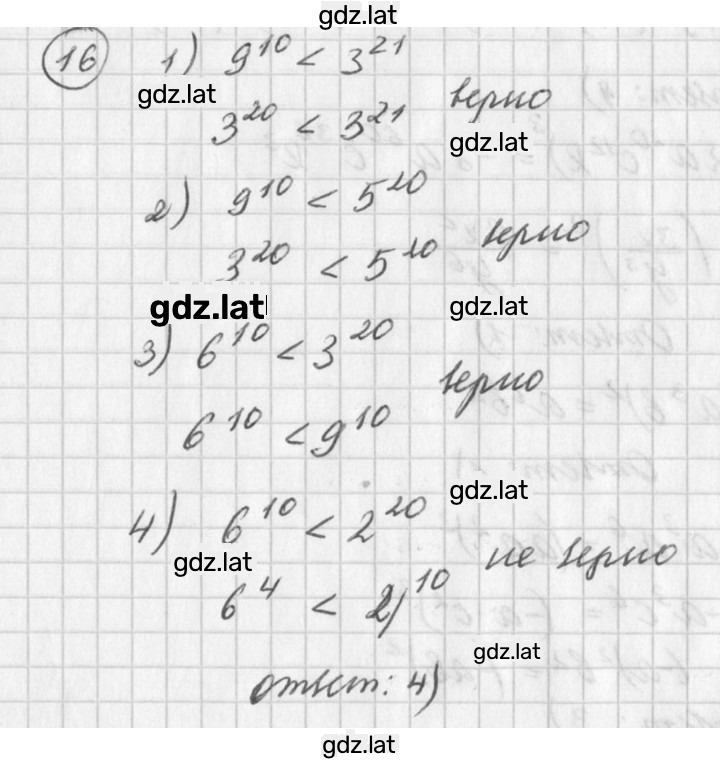 gdz.lat
16 1) 9^10 < 3^21
gdz.lat
3^20 < 3^21 верно
gdz.lat
2) 9^10 < 5^20
3^20 < 5^20 верно
gdz.lat
gdz.lat
3) 6^10 < 3^20
верно
6^10 < 9^10
gdz.lat
4) 6^10 < 2^20
gdz.lat
не верно
6^4 < 2)^10
gdz.lat
ответ: 4)
gdz.lat